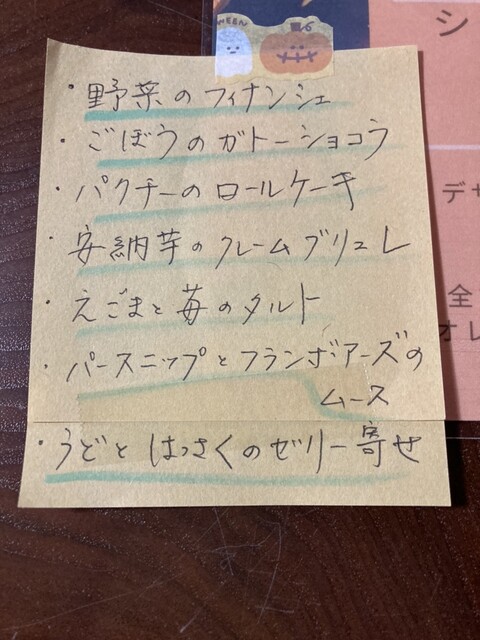 ・野菜のフィナンシェ
・ごぼうのガトーショコラ
・パクチーのロールケーキ
・安納芋のクレームブリュレ
・えごまと苺のタルト
・パースニップとフランボアーズの
ムース
・うどとはっさくのゼリー寄せ
シ
デサ
全
オレ